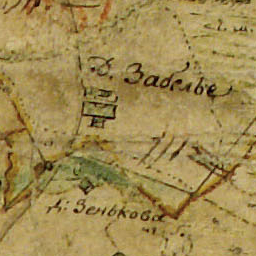 Д. Забелье
д: Зенькова